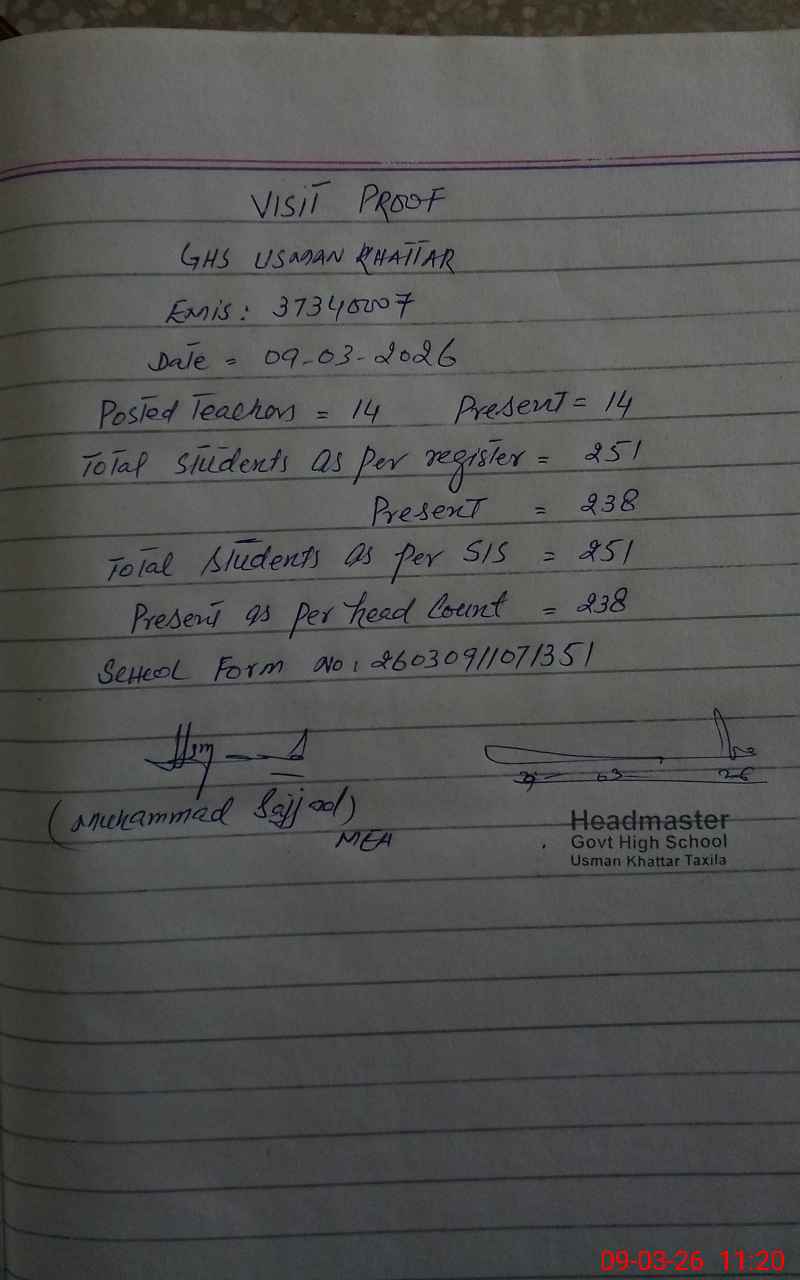 VISIT PROOF
GHS USMAN KHATTAR
EMIS: 37340007
Date = 09-03-2026
Posted Teachers = 14 Present = 14
Total Students as per register = 251
Present = 238
Total Students as per SIS = 251
Present as per head Count = 238
School Form No: 26030911071351
(Muhammad Sajjad)
MEA
09 03 26
Headmaster
Govt High School
Usman Khattar Taxila
09-03-26 11:20